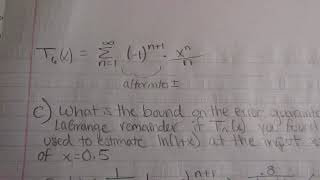 Tₙ(x) = ∞ Σ n=1 (-1)ⁿ⁺¹ · xⁿ/n
alternates ±
c) What is the bound on the error guarante
Lagrange remainder if Tₙ(x) you found
used to estimate ln(1+x) at the input
of x=0.5